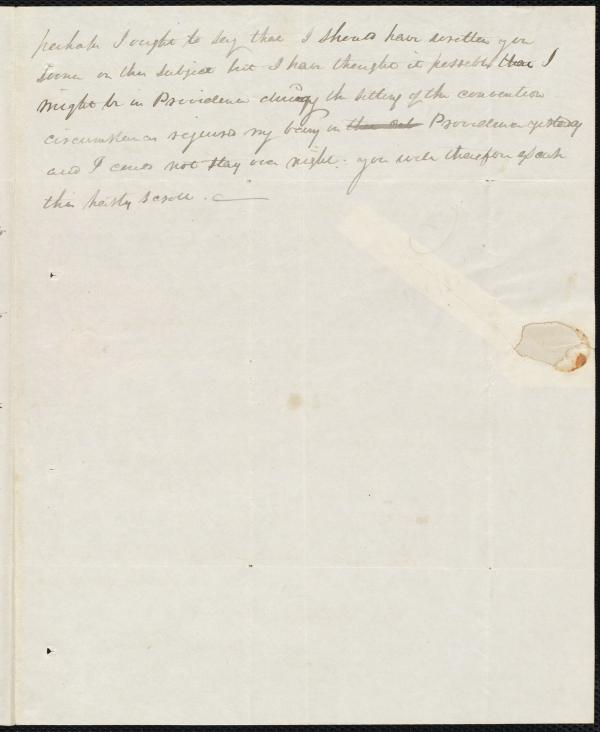 perhaps I ought to say that I should have written you
sooner on this subject but I have thought it possible that I
might be in Providence during the sitting of the convention
circumstances required my being in Providence yesterday
and I could not stay over night. you will therefore excuse
this hasty scroll.